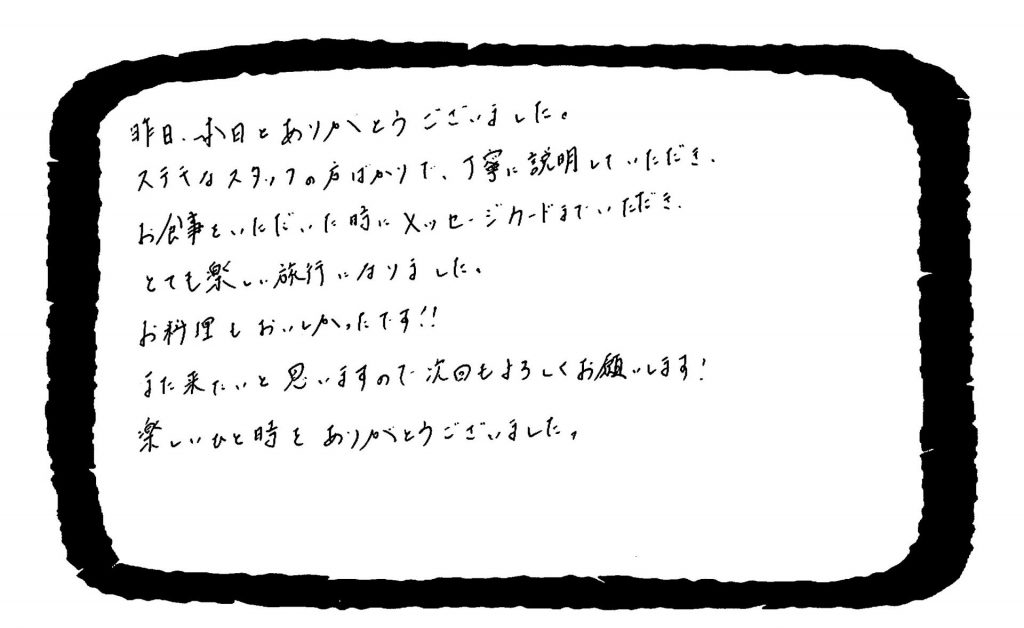 昨日、本日とありがとうございました。
ステキなスタッフの方ばかりで、丁寧に説明していただき、
お食事をいただいた時にメッセージカードまでいただき、
とても楽しい旅行になりました。
お料理もおいしかったです!!
また来たいと思いますので次回もよろしくお願いします!
楽しいひと時をありがとうございました。